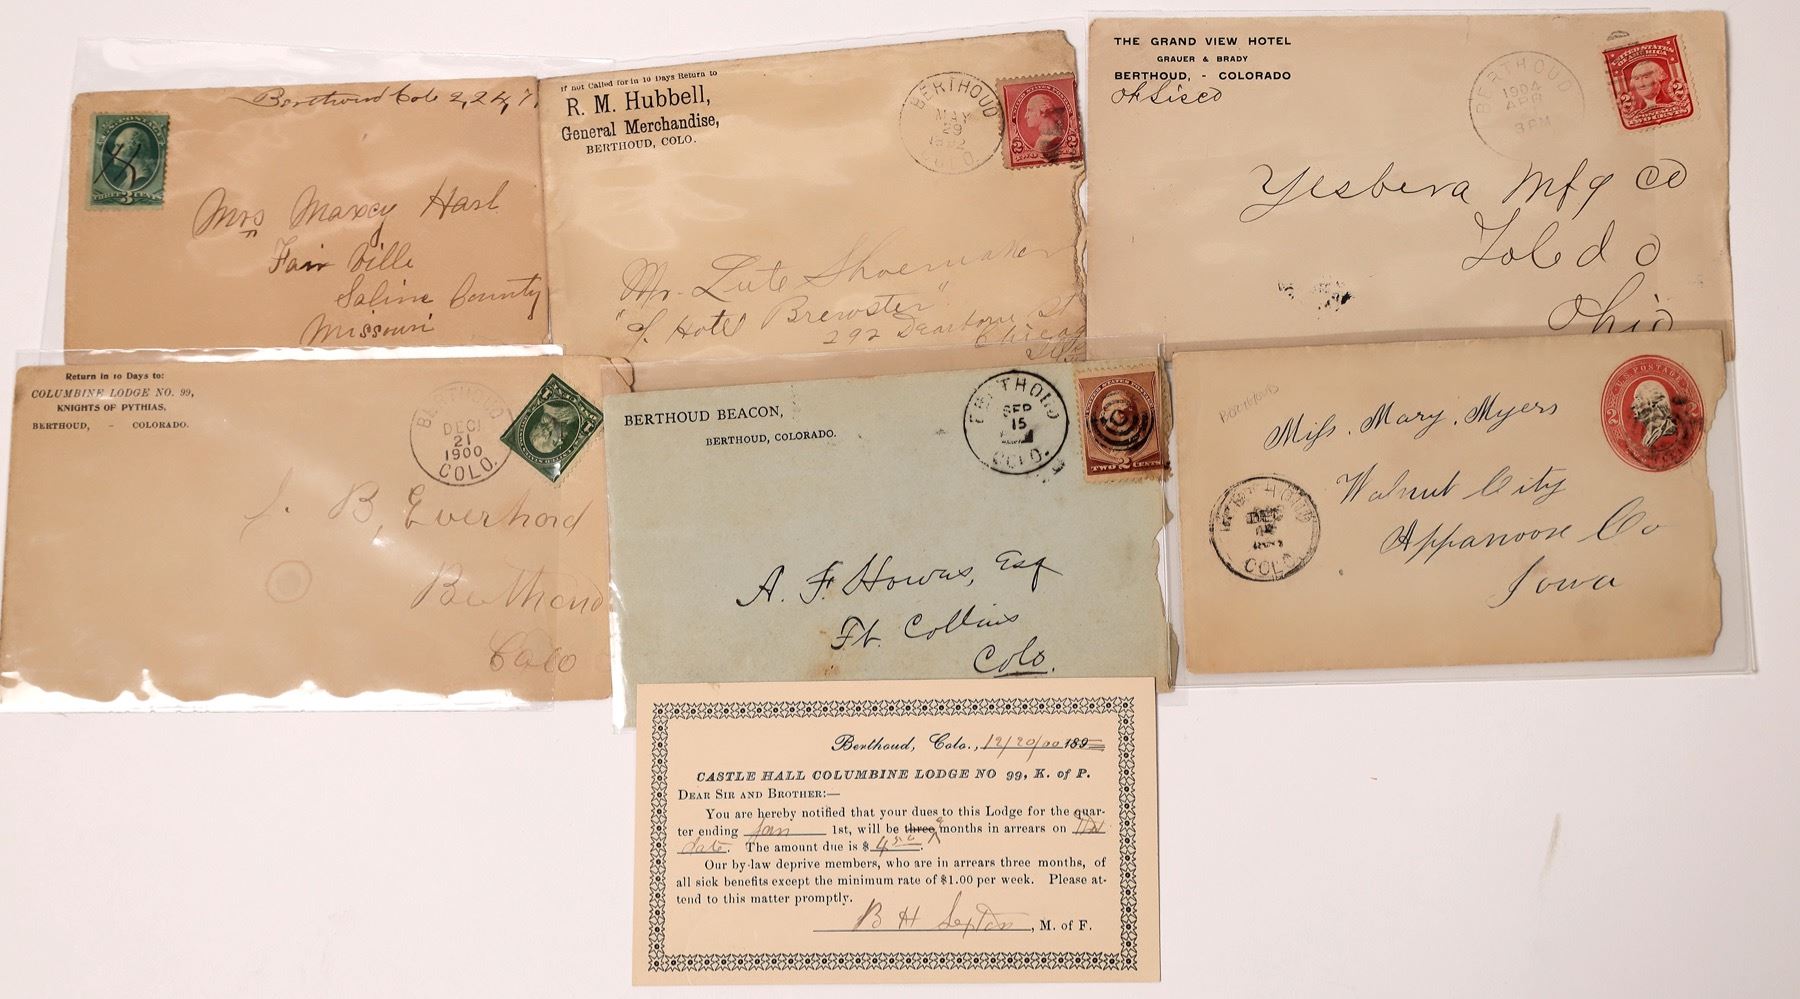 Berthoud Colo 2, 24, 7
U.S. POSTAGE
THREE 3 CENTS
Mrs Maxey Harl
Fair Ville
Saline County
Missouri
If not Called for in 10 Days Return to
R. M. Hubbell,
General Merchandise,
BERTHOUD, COLO.
BERTHOUD
MAY
29
1892
COLO.
2 TWO 2
Mr. Lute Shoemaker
"c/. Hotel Brewster"
292 Dearborn St
Chicago
Ills
THE GRAND VIEW HOTEL
GRAUER & BRADY
BERTHOUD, - COLORADO
BERTHOUD
1904
APR
3 PM
UNITED STATES
OF AMERICA
2 2
POSTAGE
TWO CENTS
Yesbera Mfg Co
Toledo
Ohio
Return in 10 Days to:
COLUMBINE LODGE NO. 99,
KNIGHTS OF PYTHIAS,
BERTHOUD, - COLORADO.
BERTHOUD
DEC
21
1900
COLO.
J. B, Everhard
Berthoud
Colo
BERTHOUD BEACON,
BERTHOUD, COLORADO.
BERTHOUD
SEP
15
COLO.
TWO 2 CENTS
A. F. Howes, Esq
Ft. Collins
Colo.
BERTHOUD
U.S. POSTAGE
2 2
Miss. Mary, Myers
Walnut City
Appanoose Co
Iowa
BERTHOUD
DEC
COLO.
Berthoud, Colo., 12/20/00 189
CASTLE HALL COLUMBINE LODGE NO 99, K. of P.
DEAR SIR AND BROTHER:—
You are hereby notified that your dues to this Lodge for the quar-
ter ending Jan 1st, will be three months in arrears on this
date. The amount due is $4.50.
Our by-law deprive members, who are in arrears three months, of
all sick benefits except the minimum rate of $1.00 per week. Please at-
tend to this matter promptly.
B H Sexton, M. of F.